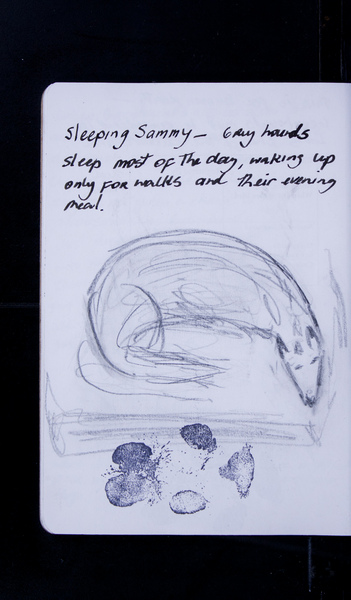 Sleeping Sammy — Grey hounds
sleep most of the day, waking up
only for walks and their evening
meal.